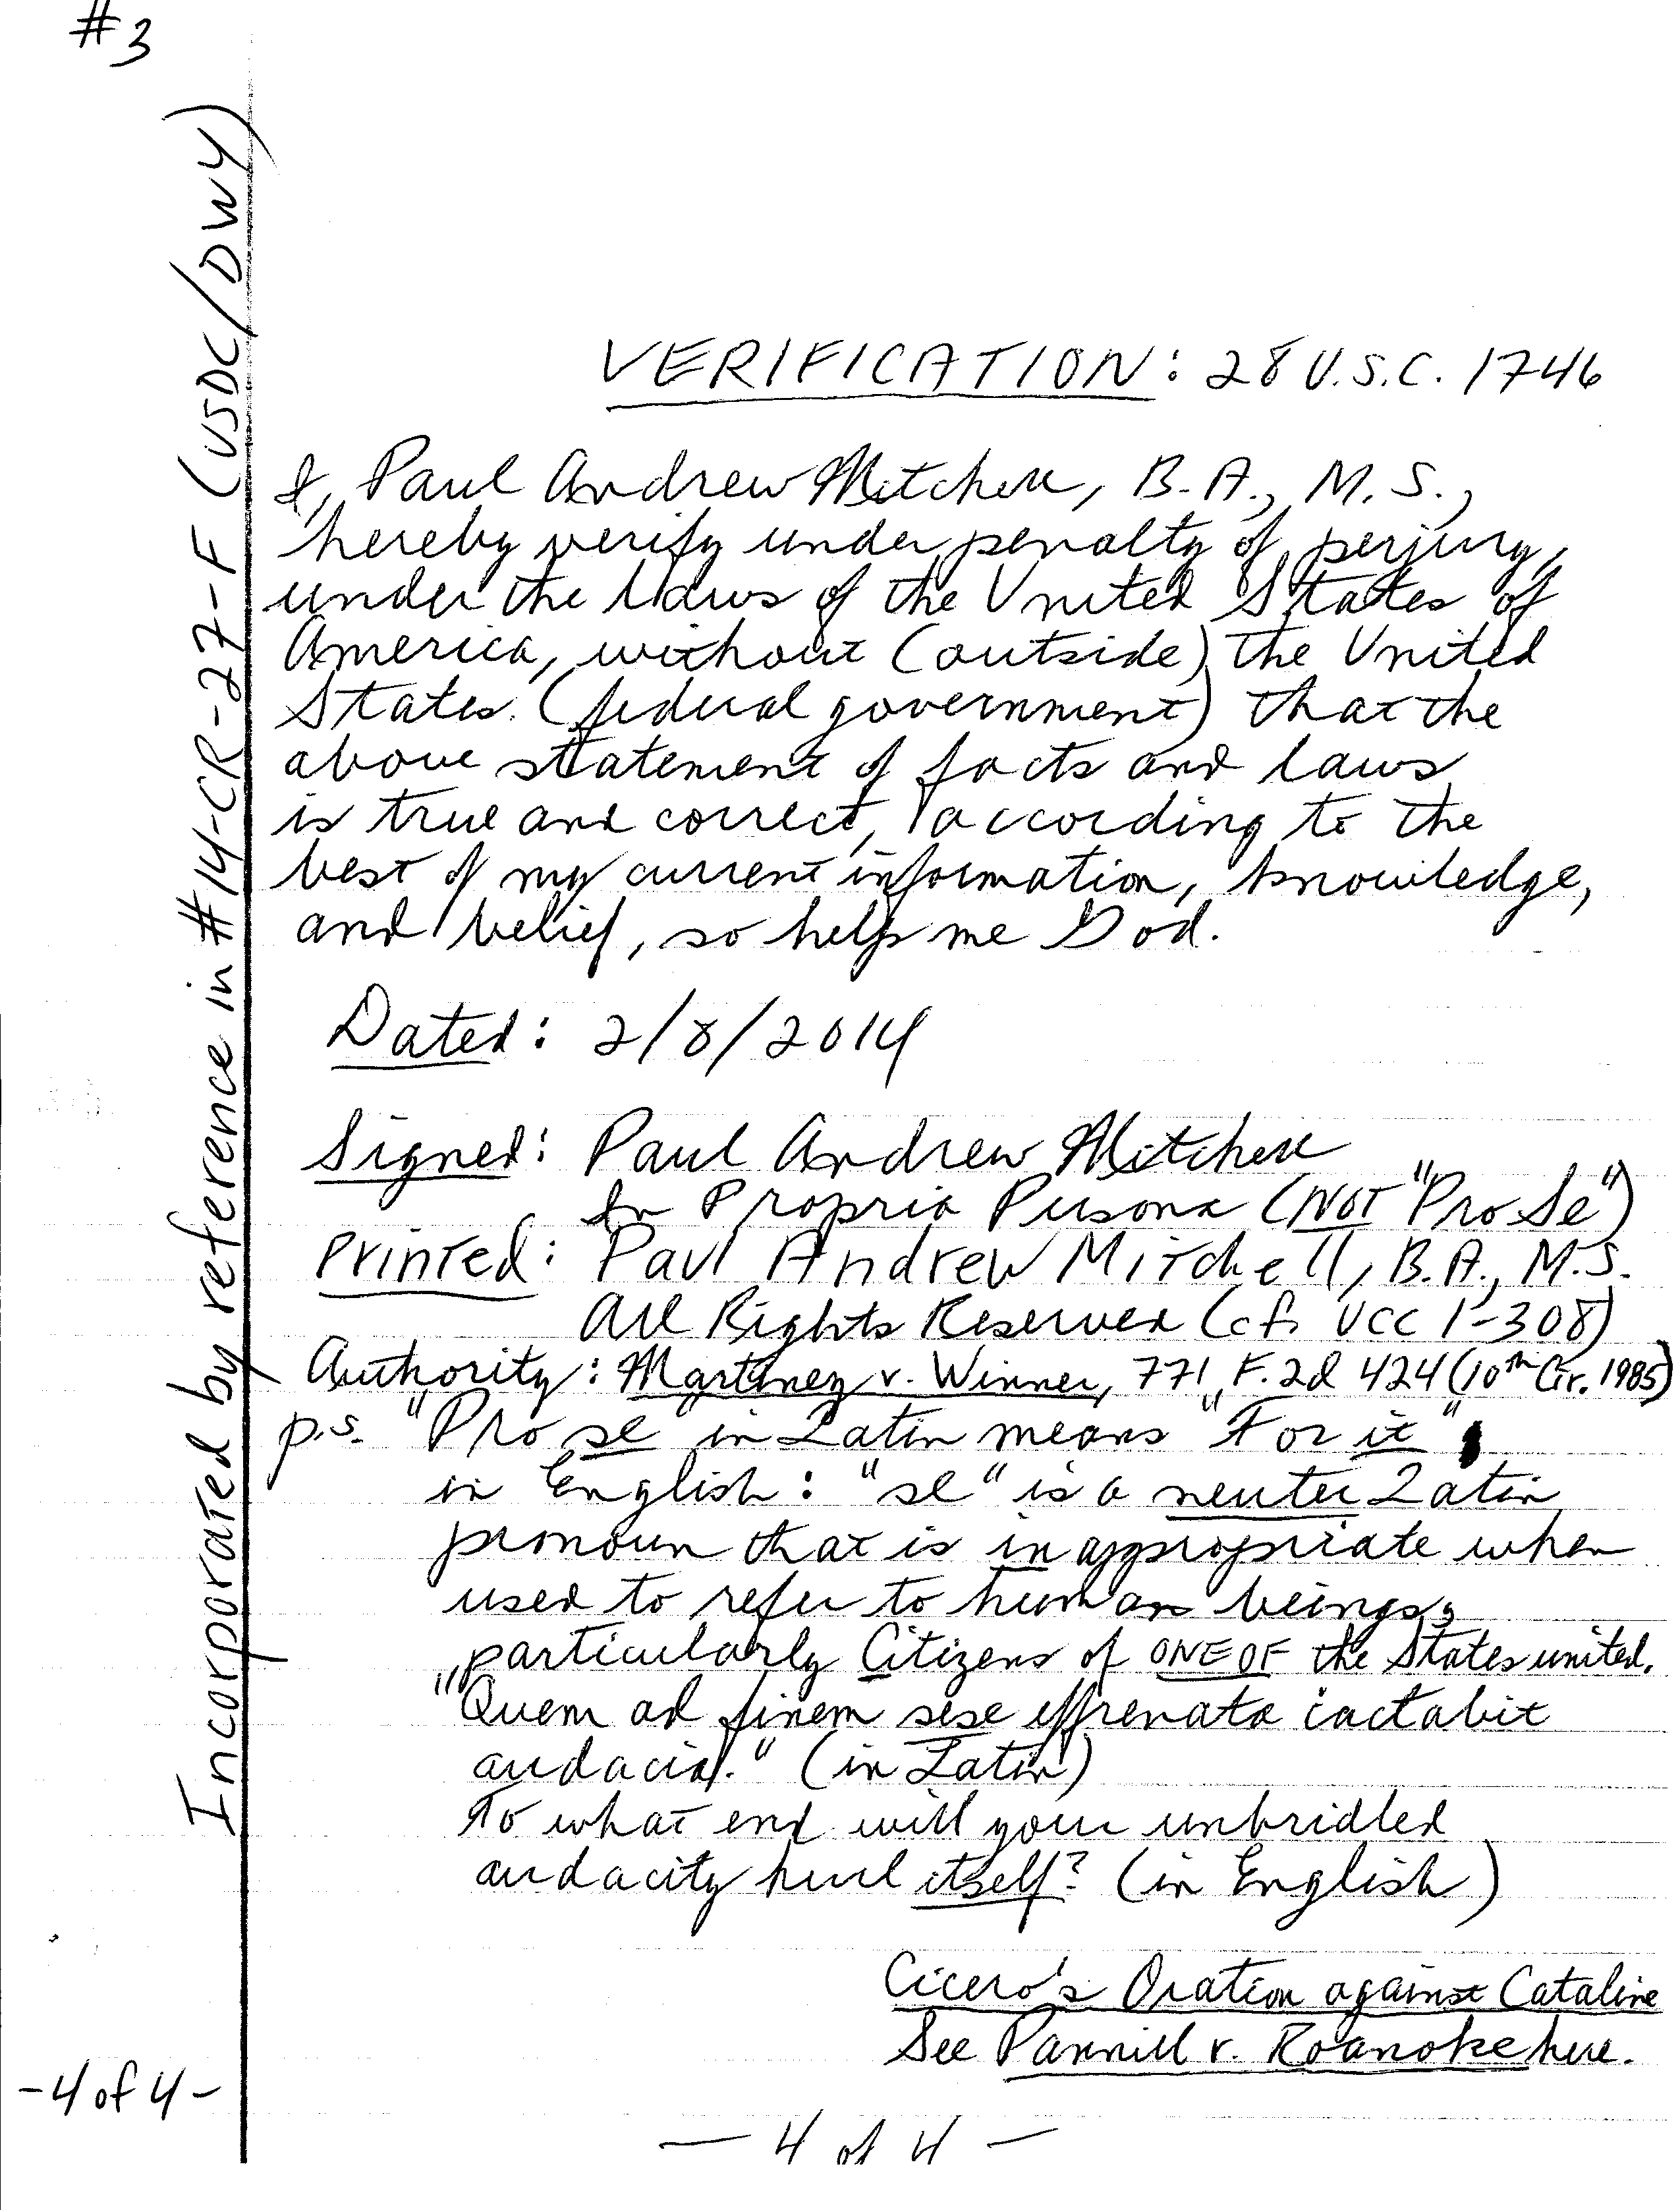 #3
Incorporated by reference in #14-CR-27-F (USDC/DWY)
VERIFICATION: 28 U.S.C. 1746
I, Paul Andrew Mitchell, B.A., M.S.,
hereby verify under penalty of perjury,
under the laws of the United States of
America, without (outside) the United
States (federal government) that the
above statement of facts and laws
is true and correct, according to the
best of my current information, knowledge,
and belief, so help me God.
Dated: 2/8/2014
Signed: Paul Andrew Mitchell
In Propria Persona (NOT "Pro Se")
Printed: Paul Andrew Mitchell, B.A., M.S.
All Rights Reserved (cf. UCC 1-308)
Authority: Martinez v. Winner, 771 F.2d 424 (10th Cir. 1985)
p.s. "Pro se in Latin means "For it"
in English: "se" is a neuter Latin
pronoun that is inappropriate when
used to refer to human beings,
particularly Citizens of ONE OF the States united.
"Quem ad finem sese effrenata iactabit
audacia." (in Latin)
To what end will your unbridled
audacity hurl itself? (in English)
Cicero's Oration against Cataline
See Pannill v. Roanoke here.
-4 of 4-
- 4 of 4 -